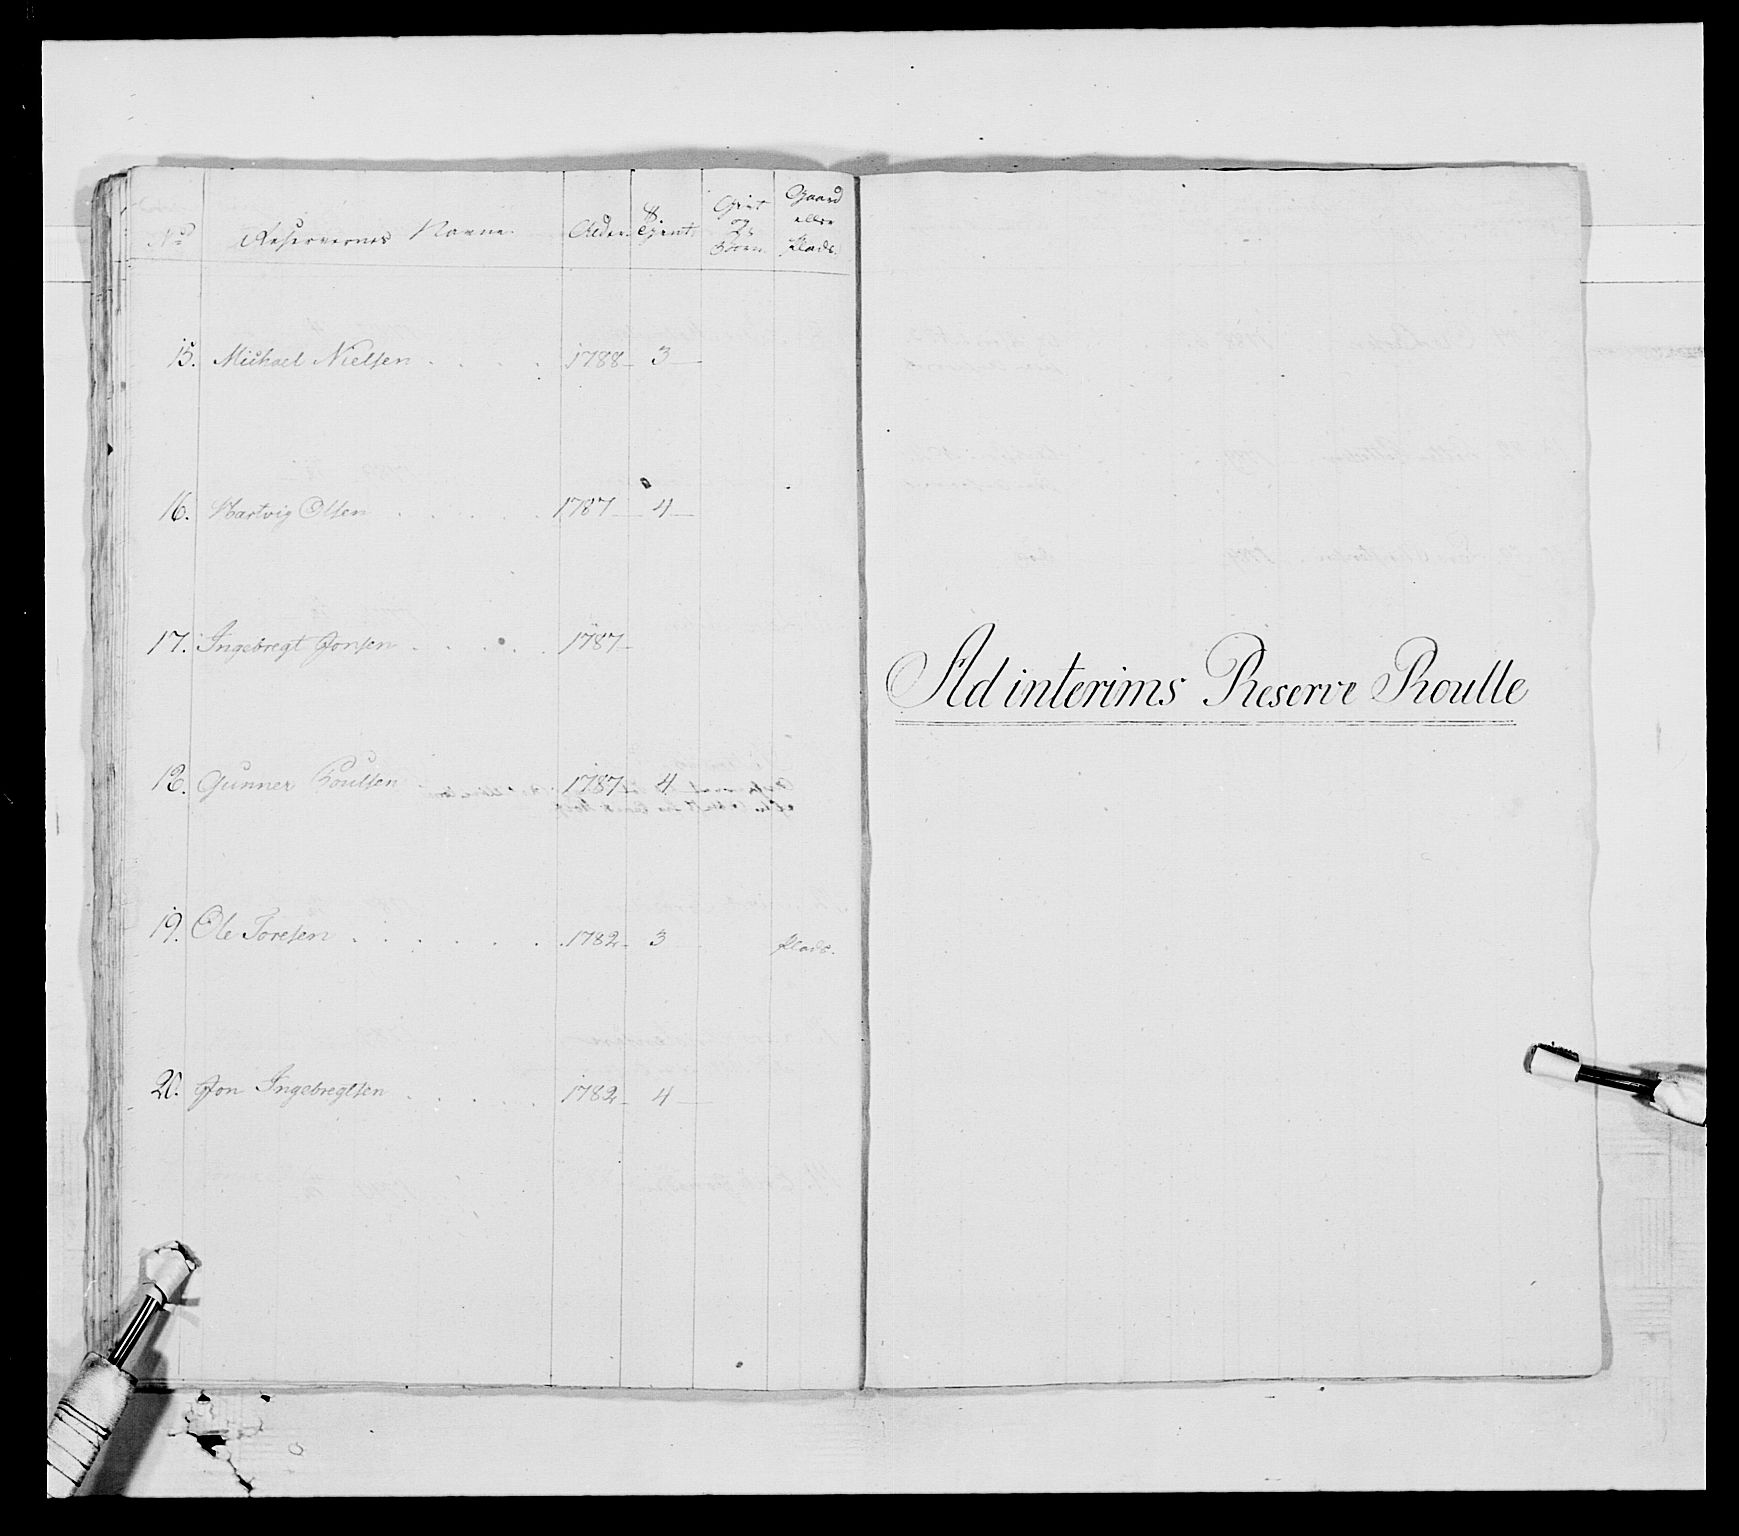 No Reservernes Navne. Alder. Tjent. Gift og Børn Gaard eller Plads.
15. Michael Nielsen . . . . 1788 3
16. Hartvig Olsen . . . . 1787 4
17. Ingebregt Jonsen . . . . . 1787
18. Gunner Poulsen 1787 4
19. Ole Toresen . . . . . . . 1782 3 Plads.
20. Jon Ingebregtsen . . . . . 1782 4
Ad interims Reserve Roulle